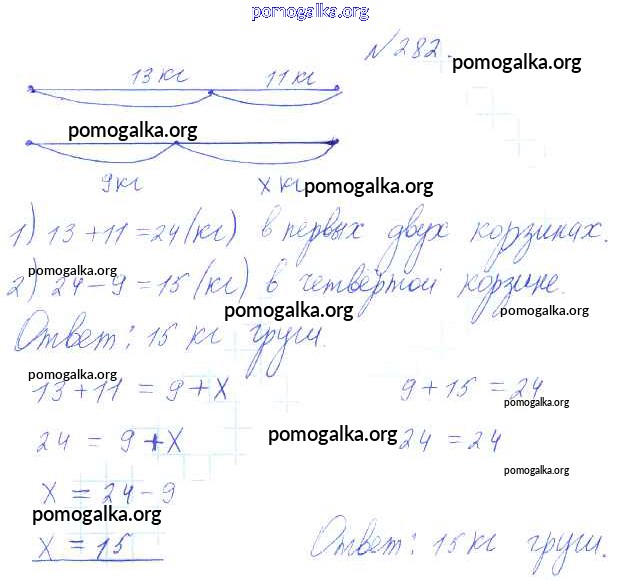 pomogalka.org
№282.
pomogalka.org
13 кг 11 кг
pomogalka.org
9 кг х кг
pomogalka.org
1) 13 + 11 = 24 (кг) в первых двух корзинах.
pomogalka.org
2) 24 - 9 = 15 (кг) в четвёртой корзине.
pomogalka.org
pomogalka.org
Ответ: 15 кг груш.
pomogalka.org
13 + 11 = 9 + х 9 + 15 = 24
pomogalka.org
24 = 9 + х 24 = 24
pomogalka.org
pomogalka.org
х = 24 - 9
pomogalka.org
х = 15 Ответ: 15 кг груш.